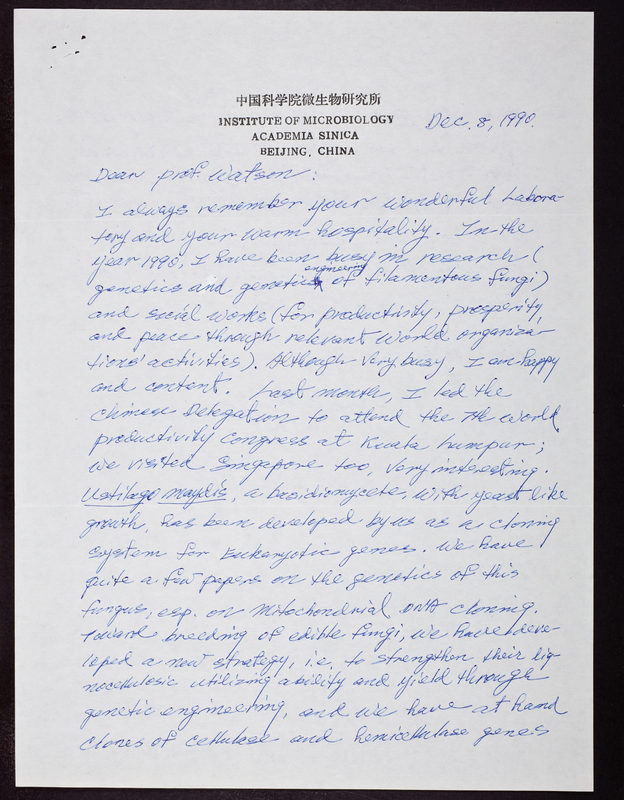 中国科学院微生物研究所
INSTITUTE OF MICROBIOLOGY
ACADEMIA SINICA
BEIJING, CHINA
Dec. 8, 1990.
Dear prof. Watson:
I always remember your wonderful Labora-
tory and your warm hospitality. In the
year 1990, I have been busy in research (
genetics and genetic engineering of filamentous fungi)
and social works (for productivity, prosperity,
and peace through relevant world organiza-
tions' activities). Although very busy, I am happy
and content. Last month, I led the
Chinese Delegation to attend the 7th World
productivity Congress at Kuala Lumpur;
we visited Singapore too, very interesting.
Ustilago maydis, a basidiomycete, with yeast like
growth, has been developed by us as a cloning
system for Eukaryotic genes. We have
quite a few papers on the genetics of this
fungus, esp. on Mitochondrial DNA cloning.
Toward breeding of edible fungi, we have deve-
loped a new strategy, i.e. to strengthen their lig-
nocellulosic utilizing ability and yield through
genetic engineering, and we have at hand
clones of cellulase and hemicellulase genes